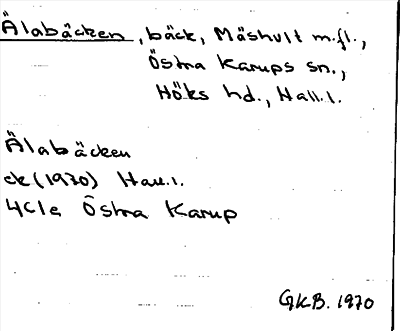 Älabäcken, bäck, Mäshult m.fl.,
Östra Karups sn.,
Höks hd., Hall.l.
Älabäcken
ek (1970) Hall.l.
4C1e Östra Karup
GKB. 1970